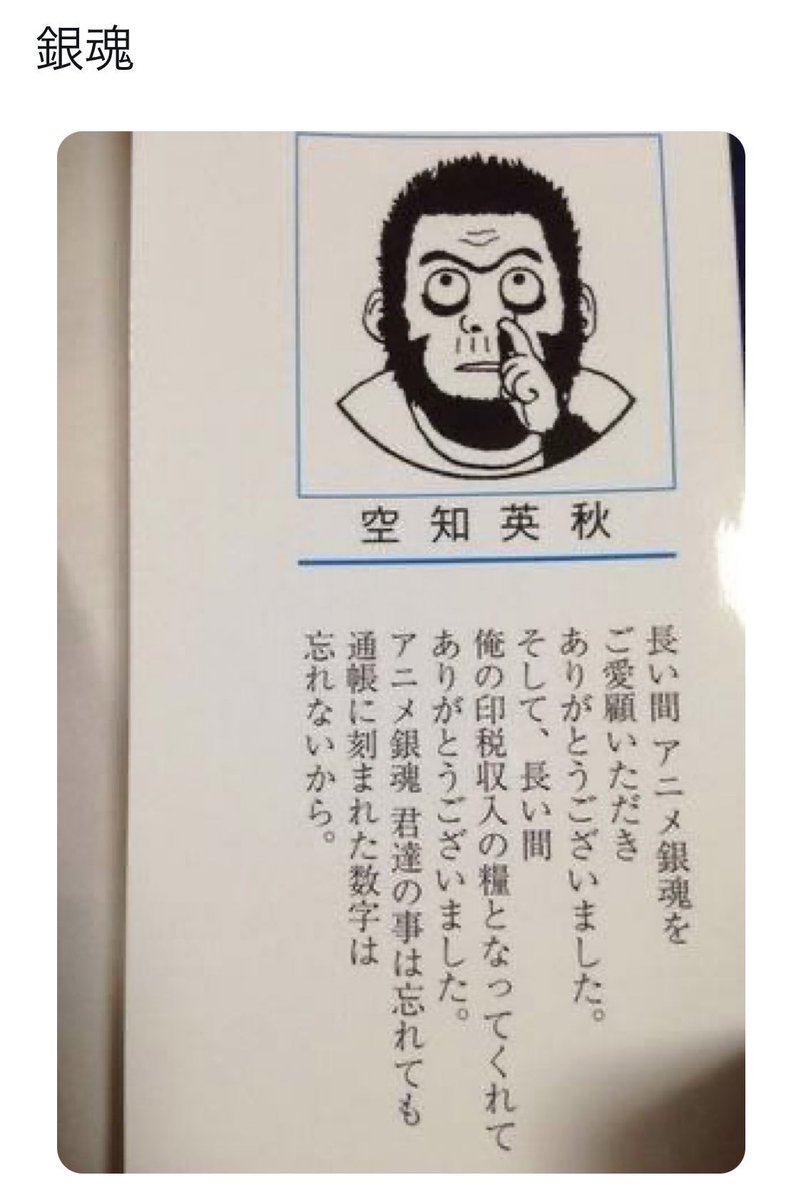 銀魂
空知英秋
長い間 アニメ銀魂を
ご愛顧いただき
ありがとうございました。
そして、長い間
俺の印税収入の糧となってくれて
ありがとうございました。
アニメ銀魂 君達の事は忘れても
通帳に刻まれた数字は
忘れないから。